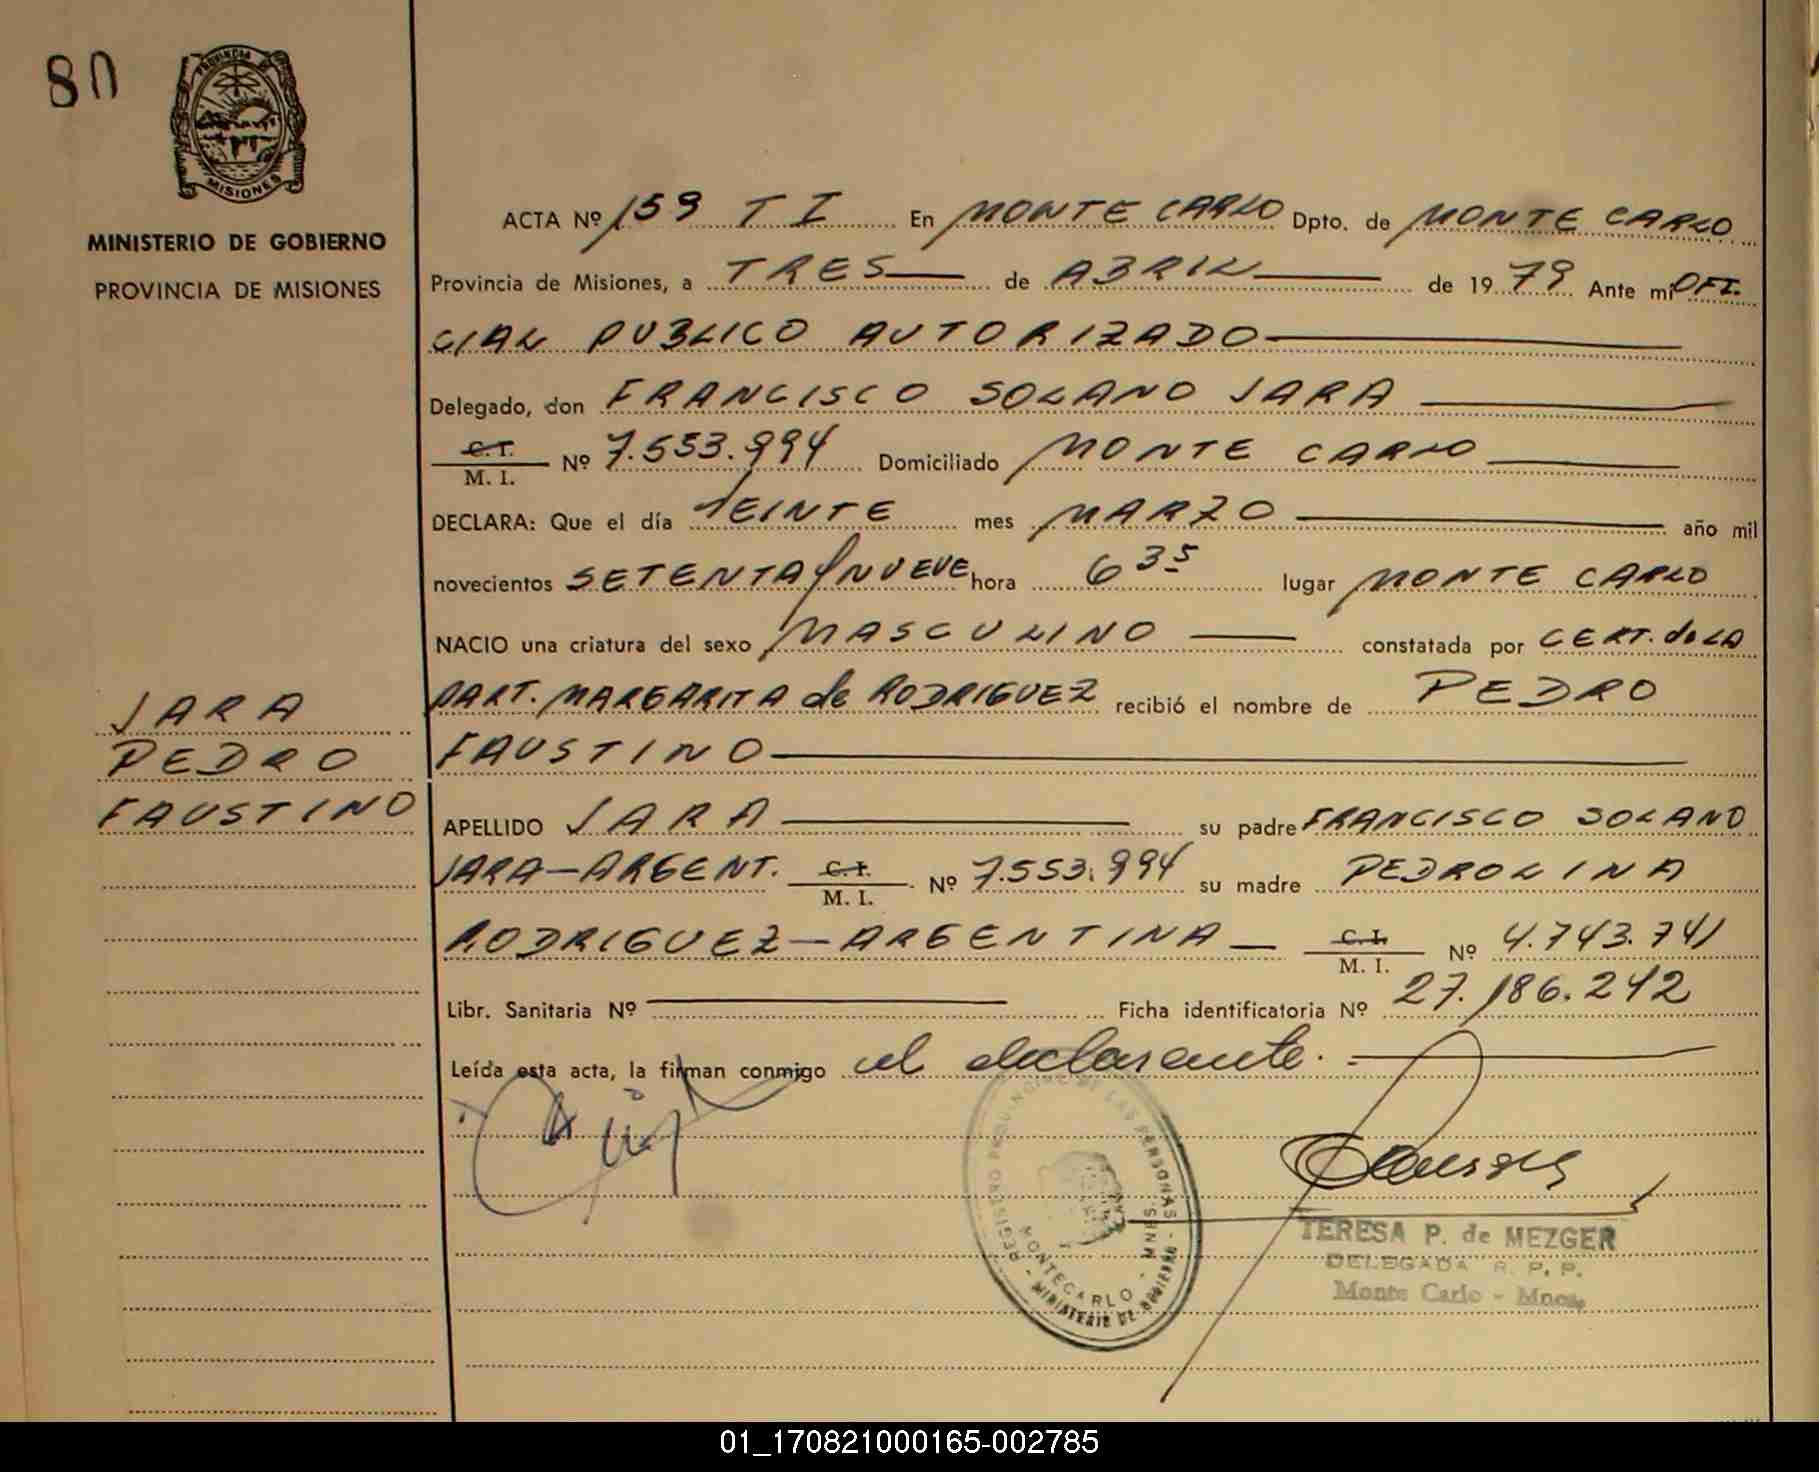 80
PROVINCIA DE
MISIONES
MINISTERIO DE GOBIERNO
PROVINCIA DE MISIONES
ACTA Nº 159 T I En MONTE CARLO Dpto. de MONTE CARLO
Provincia de Misiones, a TRES de ABRIL de 1979 Ante mi OFI.
CIAL PUBLICO AUTORIZADO
Delegado, don FRANCISCO SOLANO JARA
C.I.
M. I. Nº 7.553.994 Domiciliado MONTE CARLO
DECLARA: Que el día VEINTE mes MARZO año mil
novecientos SETENTA y NUEVE hora 6 35 lugar MONTE CARLO
NACIO una criatura del sexo MASCULINO constatada por CERT. de LA
PART. MARGARITA de RODRIGUEZ recibió el nombre de PEDRO
FAUSTINO
JARA
PEDRO
FAUSTINO
APELLIDO JARA su padre FRANCISCO SOLANO
JARA-ARGENT. C.I.
M. I. Nº 7.553.994 su madre PEDROLINA
RODRIGUEZ-ARGENTINA C.I.
M. I. Nº 4.743.741
Libr. Sanitaria Nº Ficha identificatoria Nº 27.186.242
Leída esta acta, la firman conmigo el declarante.
REGISTRO PROVINCIAL DE LAS PERSONAS - MNES.
MONTECARLO
MINISTERIO DE GOBIERNO
TERESA P. de MEZGER
DELEGADA R. P. P.
Monte Carlo - Mnes.
01_170821000165-002785